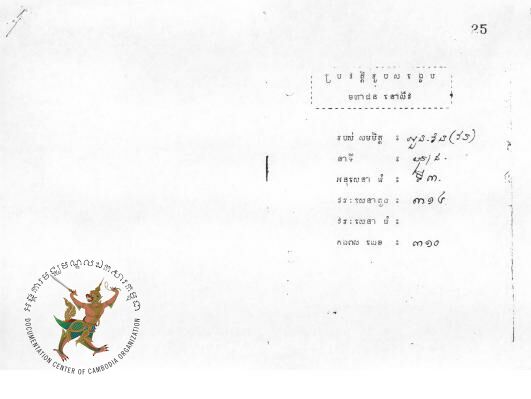 25
ប្រវត្តិរូបសង្ខេប
មហាជន នៅលីវ
របស់ សមមិត្ត ៖
នាទី ៖
អនុសេនា ធំ ៖ ទី៣.
វរៈសេនាតូច ៖ ៣១៤
វរៈសេនា ធំ ៖
កងពល លេខ ៖ ៣១០
អង្គការមជ្ឈមណ្ឌលឯកសារកម្ពុជា
DOCUMENTATION CENTER OF CAMBODIA ORGANIZATION